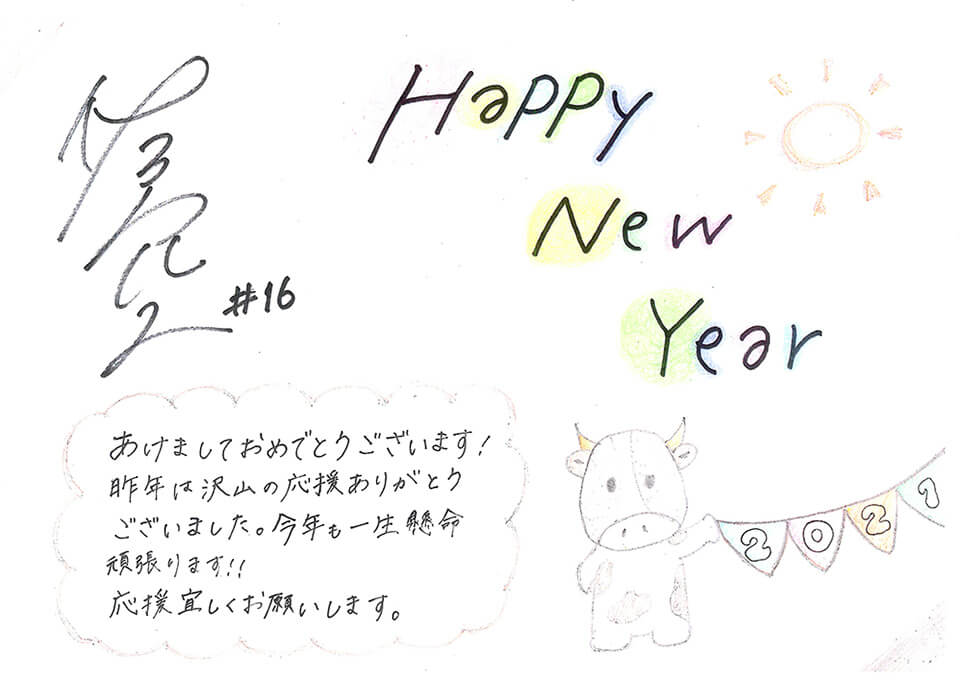 Happy
New
Year
#16
あけましておめでとうございます!
昨年は沢山の応援ありがとう
ございました。今年も一生懸命
頑張ります!!
応援宜しくお願いします。
2021